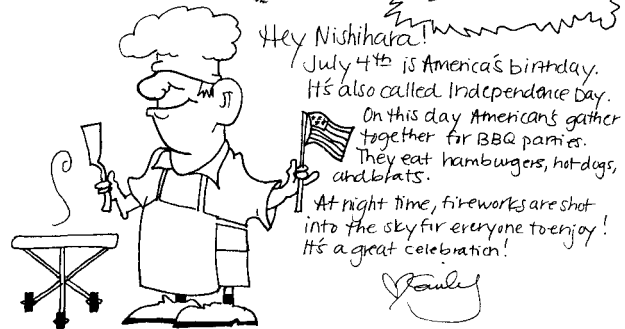 Hey Nishihara!
July 4th is America's birthday.
It's also called Independence Day.
On this day American's gather
together for BBQ parties.
They eat hamburgers, hotdogs,
and brats.
At night time, fireworks are shot
into the sky for everyone to enjoy!
It's a great celebration!